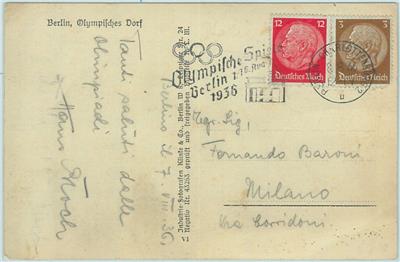 Berlin, Olympisches Dorf
Tanti saluti dalle
Olimpiadi
Hans
Industrie-Fotografen Klinke & Co., Berlin W
Negativ Nr. 43253 geprüft und freigegeben
VI
Olympische Spiele
Berlin 1.-16. Aug.
1936
12 12
Deutsches Reich
3 3
Deutsches Reich
Berlino il 7. VIII. 36.
Egr. Sig.
Fernando Baroni
Milano
Via Corridoni